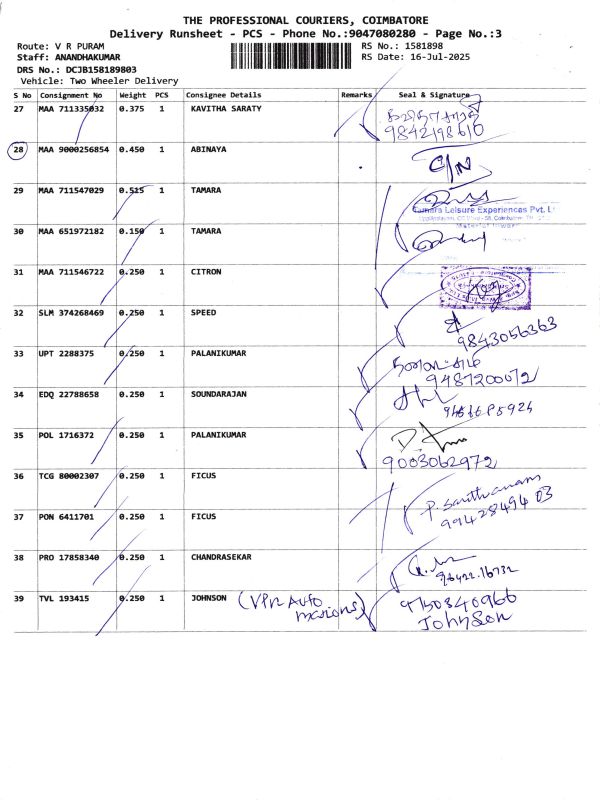 THE PROFESSIONAL COURIERS, COIMBATORE
Delivery Runsheet - PCS - Phone No.:9047080280 - Page No.:3
Route: V R PURAM
RS No.: 1581898
Staff: ANANDHAKUMAR
RS Date: 16-Jul-2025
DRS No.: DCJB158189803
Vehicle: Two Wheeler Delivery
S No Consignment No Weight PCS Consignee Details Remarks Seal & Signature
27 MAA 711335032 0.375 1 KAVITHA SARATY
9842198610
28 MAA 9000256854 0.450 1 ABINAYA C/N
29 MAA 711547029 0.515 1 TAMARA
Tamara Leisure Experiences Pvt. L
30 MAA 651972182 0.150 1 TAMARA
31 MAA 711546722 0.250 1 CITRON
32 SLM 374268469 0.250 1 SPEED
9843056363
33 UPT 2288375 0.250 1 PALANIKUMAR
9487200072
34 EDQ 22788658 0.250 1 SOUNDARAJAN
35 POL 1716372 0.250 1 PALANIKUMAR
9003062972
36 TCG 80002307 0.250 1 FICUS
37 PON 6411701 0.250 1 FICUS
9942849403
38 PRO 17858340 0.250 1 CHANDRASEKAR
96422.16732
39 TVL 193415 0.250 1 JOHNSON (VPN Auto 9750340966
Johnson